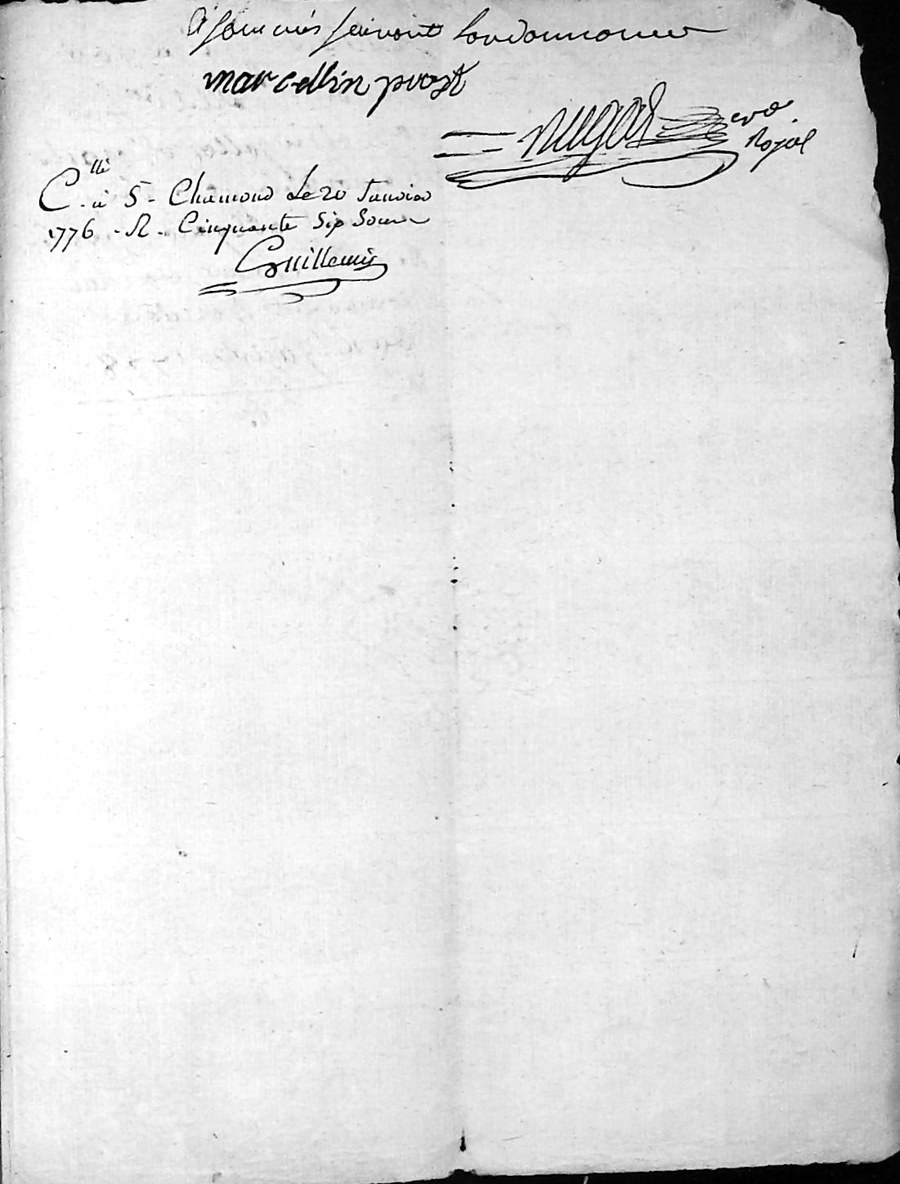 & sommés suivant lordonnance
marcellin prost
nugas no.re
Royal
C.llé à St Chamond Le 20 Janvier
1776 - R - Cinquante Six Sous
Guillemin